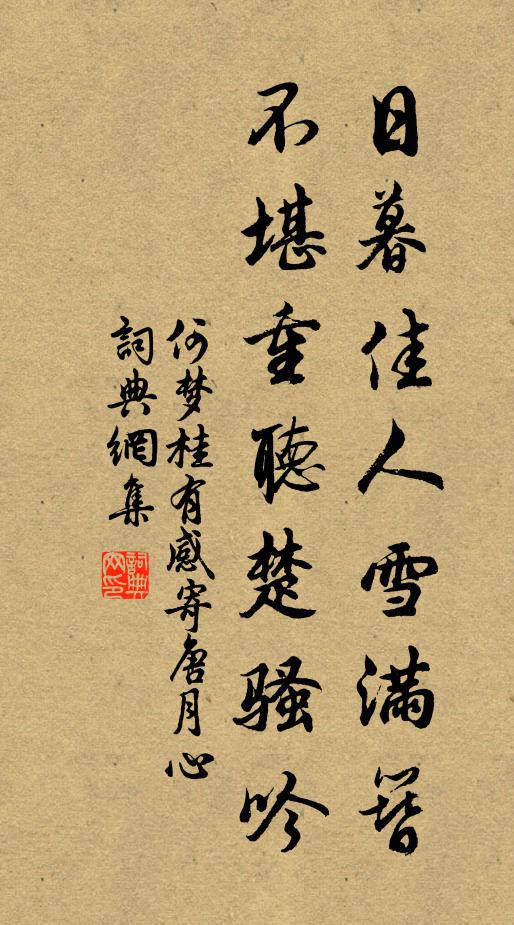 日暮佳人雪满簪
不堪重聽楚骚吟
何梦桂有感寄唐月心
詞典網集
詞典网印